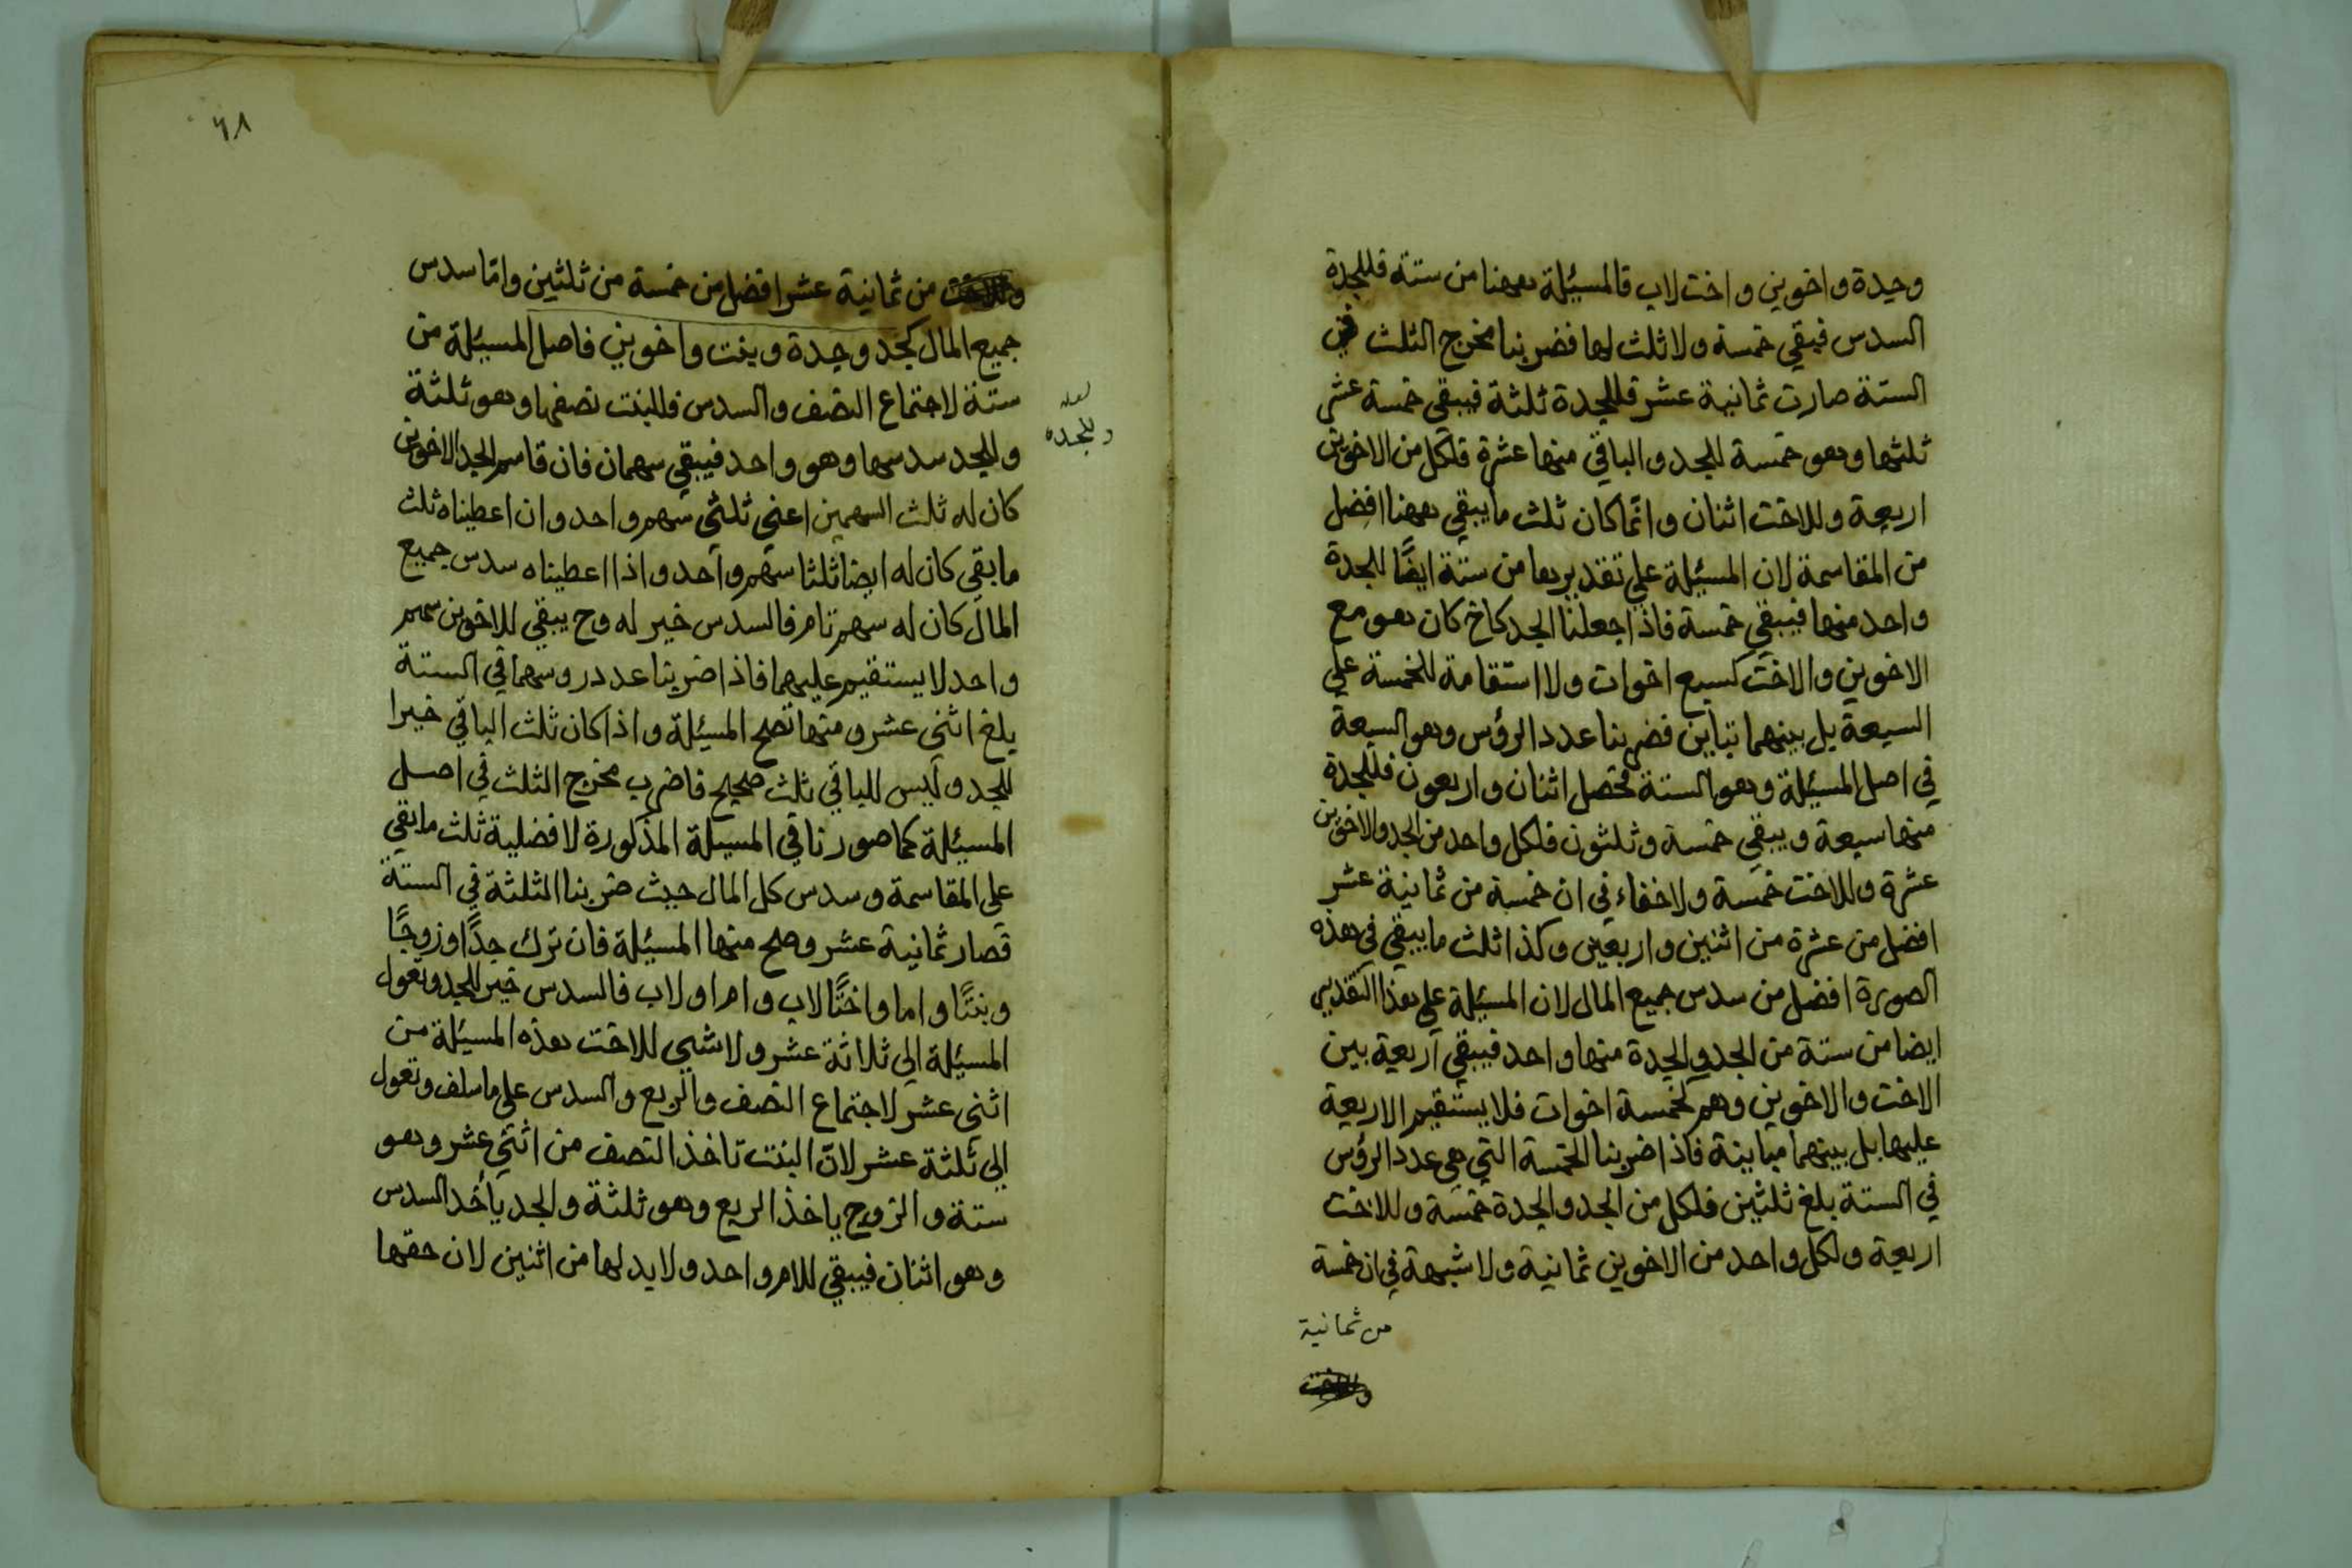 وجدة واخوين واخت لاب فالمسئلة ههنا من ستة فللجدة
السدس فيبقي خمسة ولا ثلث لها فضربنا مخرج الثلث في
الستة صارت ثمانية عشر فللجدة ثلثة فيبقي خمسة عشر
ثلثها وهو خمسة للجد والباقي منها عشرة فلكل من الاخوين
اربعة وللاخت اثنان وانما كان ثلث ما يبقي ههنا افضل
من المقاسمة لان المسئلة علي تقديرها من ستة ايضًا للجدة
واحد منها فيبقي خمسة فاذا جعلنا الجد كاخ كان هو مع
الاخوين والاخت كسبع اخوات ولا استقامة للخمسة علي
السبعة بل بينهما تباين فضربنا عدد الرؤس وهو السبعة
في اصل المسئلة وهو الستة فحصل اثنان واربعون فللجدة
منها سبعة ويبقي خمسة وثلثون فلكل واحد من الجد والاخوين
عشرة وللاخت خمسة ولا خفاء في ان خمسة من ثمانية عشر
افضل من عشرة من اثنين واربعين وكذا ثلث ما يبقي في هذه
الصورة افضل من سدس جميع المال لان المسئلة علي هذا التقدير
ايضا من ستة من الجد والجدة منها واحد فيبقي اربعة بين
الاخت والاخوين وهم كخمسة اخوات فلا يستقيم الاربعة
عليها بل بينهما مباينة فاذا ضربنا الخمسة التي هي عدد الرؤس
في الستة بلغ ثلثين فلكل من الجد والجدة خمسة وللاخت
اربعة ولكل واحد من الاخوين ثمانية ولا شبهة في ان خمسة
من ثمانية
٦٨
من ثمانية عشر افضل من خمسة من ثلثين واما سدس
جميع المال كجد وجدة وبنت واخوين فاصل المسئلة من
ستة لاجتماع النصف والسدس فللبنت نصفها وهو ثلثة
وللجد سدسها وهو واحد فيبقي سهمان فان قاسم الجد الاخوين
لعله
وللجده
كان له ثلث السهمين اعني ثلثي سهم واحد وان اعطيناه ثلث
ما بقي كان له ايضا ثلثا سهم واحد واذا اعطيناه سدس جميع
المال كان له سهم تام فالسدس خير له وح يبقي للاخوين سهم
واحد لا يستقيم عليهما فاذا ضربنا عدد روسهما في الستة
بلغ اثنى عشر ومنها تصح المسئلة واذا كان ثلث الباقي خيرا
للجد وليس للباقي ثلث صحيح فاضرب مخرج الثلث في اصل
المسئلة كما صورنا في المسئلة المذكورة لافضلية ثلث ما بقي
على المقاسمة وسدس كل المال حيث ضربنا الثلثة في الستة
فصار ثمانية عشر وصح منها المسئلة فان ترك جدًّا وزوجًا
وبنتًا واما واختًا لاب وام او لاب فالسدس خير للجد وتعول
المسئلة الي ثلاثة عشر ولا شيي للاخت هذه المسئلة من
اثنى عشر لاجتماع النصف والربع والسدس علي ما سلف وتعول
الي ثلثة عشر لان البنت تاخذ النصف من اثني عشر وهو
ستة والزوج ياخذ الربع وهو ثلثة والجد يأخذ السدس
وهو اثنان فيبقي للام واحد ولا بد لها من اثنين لان حقها